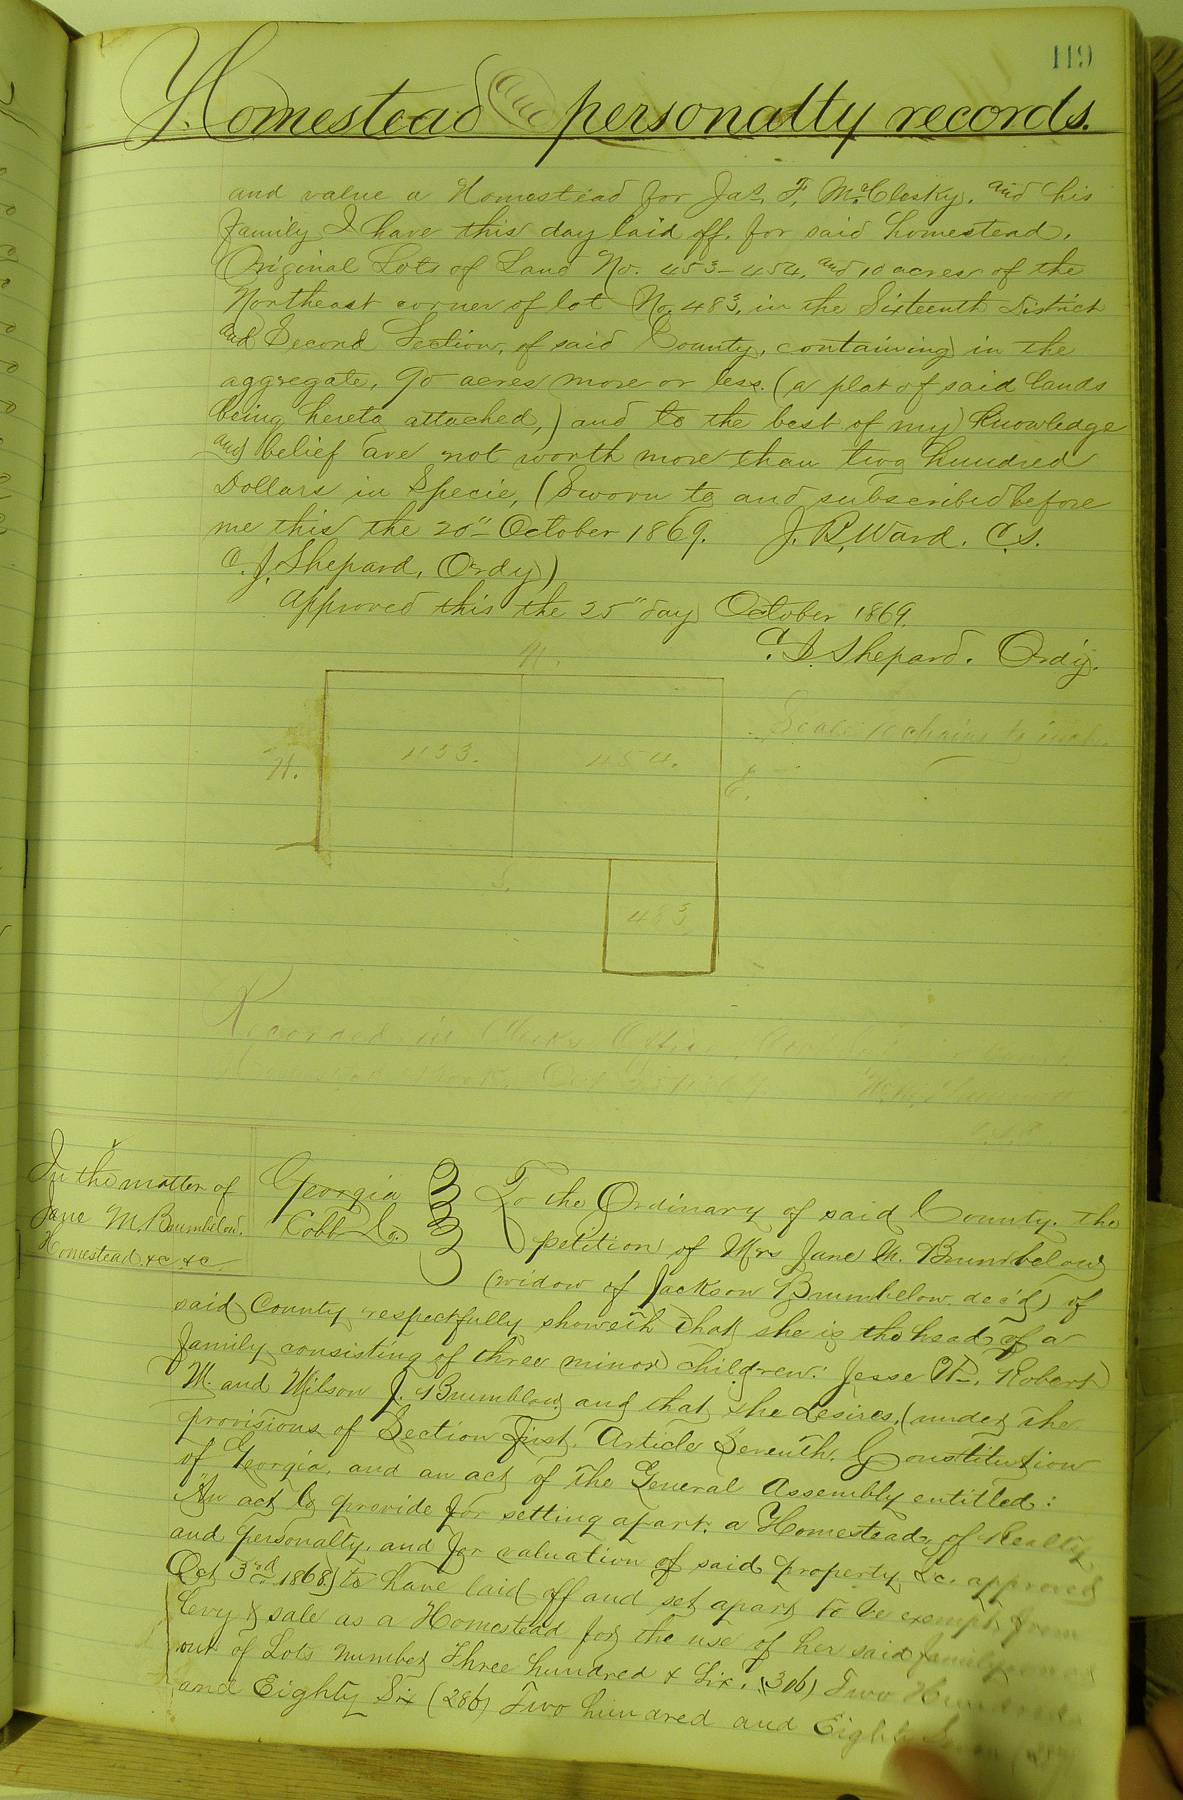 119
Homestead and personalty records.
and value a Homestead for Jas. F. McClesky. and his
family I have this day laid off. for said homestead.
Original Lots of Land No. 453-454. and 10 acres of the
Northeast corner of lot No. 483, in the Sixteenth District
and Second Section, of said County, containing in the
aggregate, 90 acres more or less. (a plat of said lands
being hereto attached,) and to the best of my knowledge
and belief are not worth more than two hundred
Dollars in Specie, (Sworn to and subscribed before
me this the 20" October 1869. J. R. Ward. C.S.
C. J. Shepard, Ordy)
Approved this the 25" day October 1869.
C. J. Shepard. Ordy.
N.
Scale 10 chains to inch.
453. 454.
E.
S.
483
Recorded in Clerks Office
In the matter of
Jane M. Brumbelow.
Homestead &c &c.
Georgia
Cobb Co.
To the Ordinary of said County. The
petition of Mrs Jane M. Brumbelow
(widow of Jackson Brumbelow dec'd) of
said County respectfully showeth that she is the head of a
family consisting of three minor children: Jesse W., Robert
M. and Wilson J. Brumblow and that she desires, (under the
provisions of Section first. Article Seventh. Constitution
of Georgia, and an act of the General Assembly entitled:
"An act to provide for setting apart. a Homestead, of Realty
and personalty, and for valuation of said property &c. approved
Oct 3rd 1868) to have laid off and set apart to be exempt from
levy & sale as a Homestead for the use of her said family
out of Lots number Three hundred & Six. (306) Two Hundred
and Eighty Six (286) Two hundred and Eighty Seven